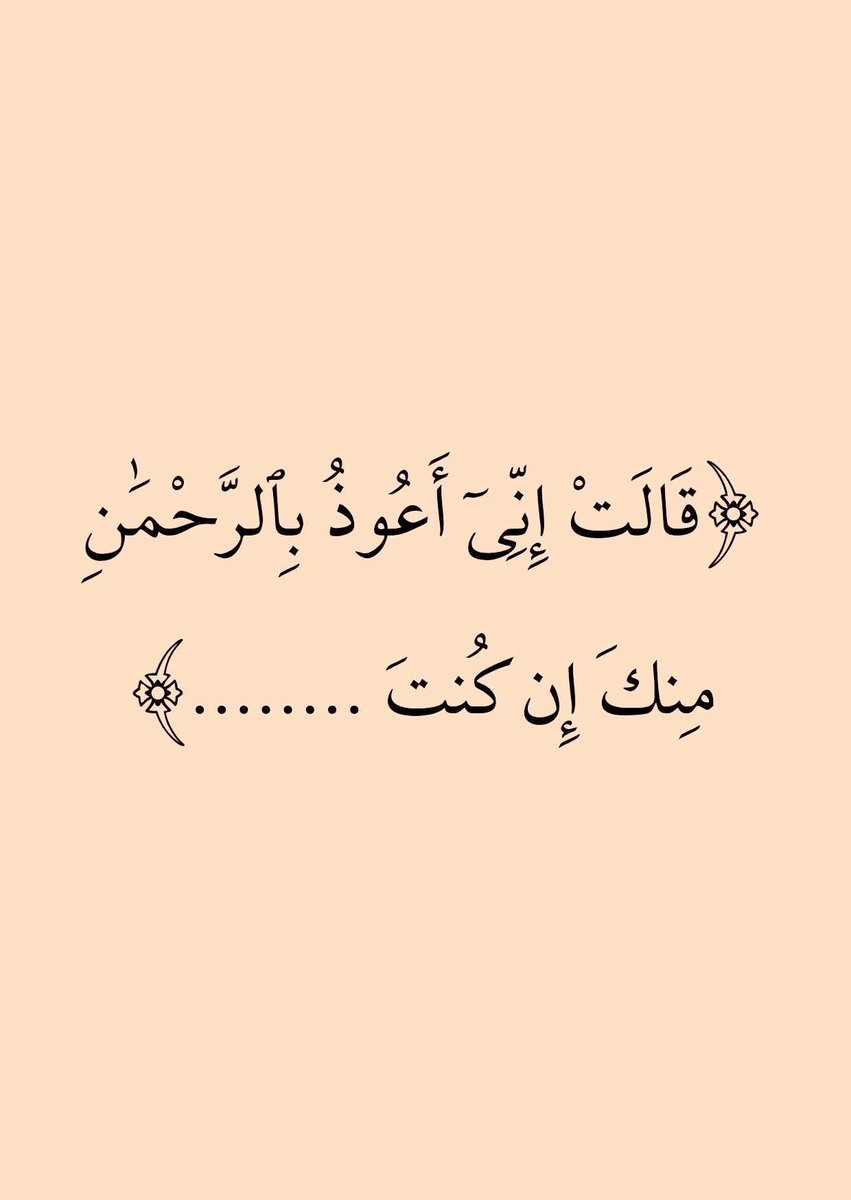 ﴿قَالَتْ إِنِّىٓ أَعُوذُ بِٱلرَّحْمَـٰنِ
مِنكَ إِن كُنتَ ........﴾